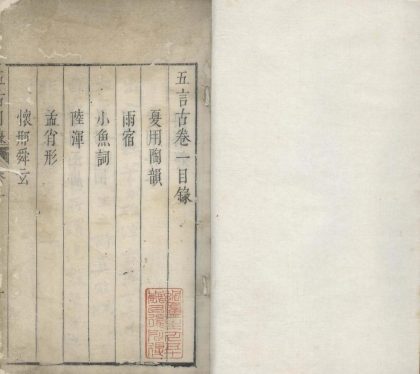 五言古卷一目錄
夏用陶韻
雨宿
小魚詞
陸渾
孟貞形
懷邢舜玄